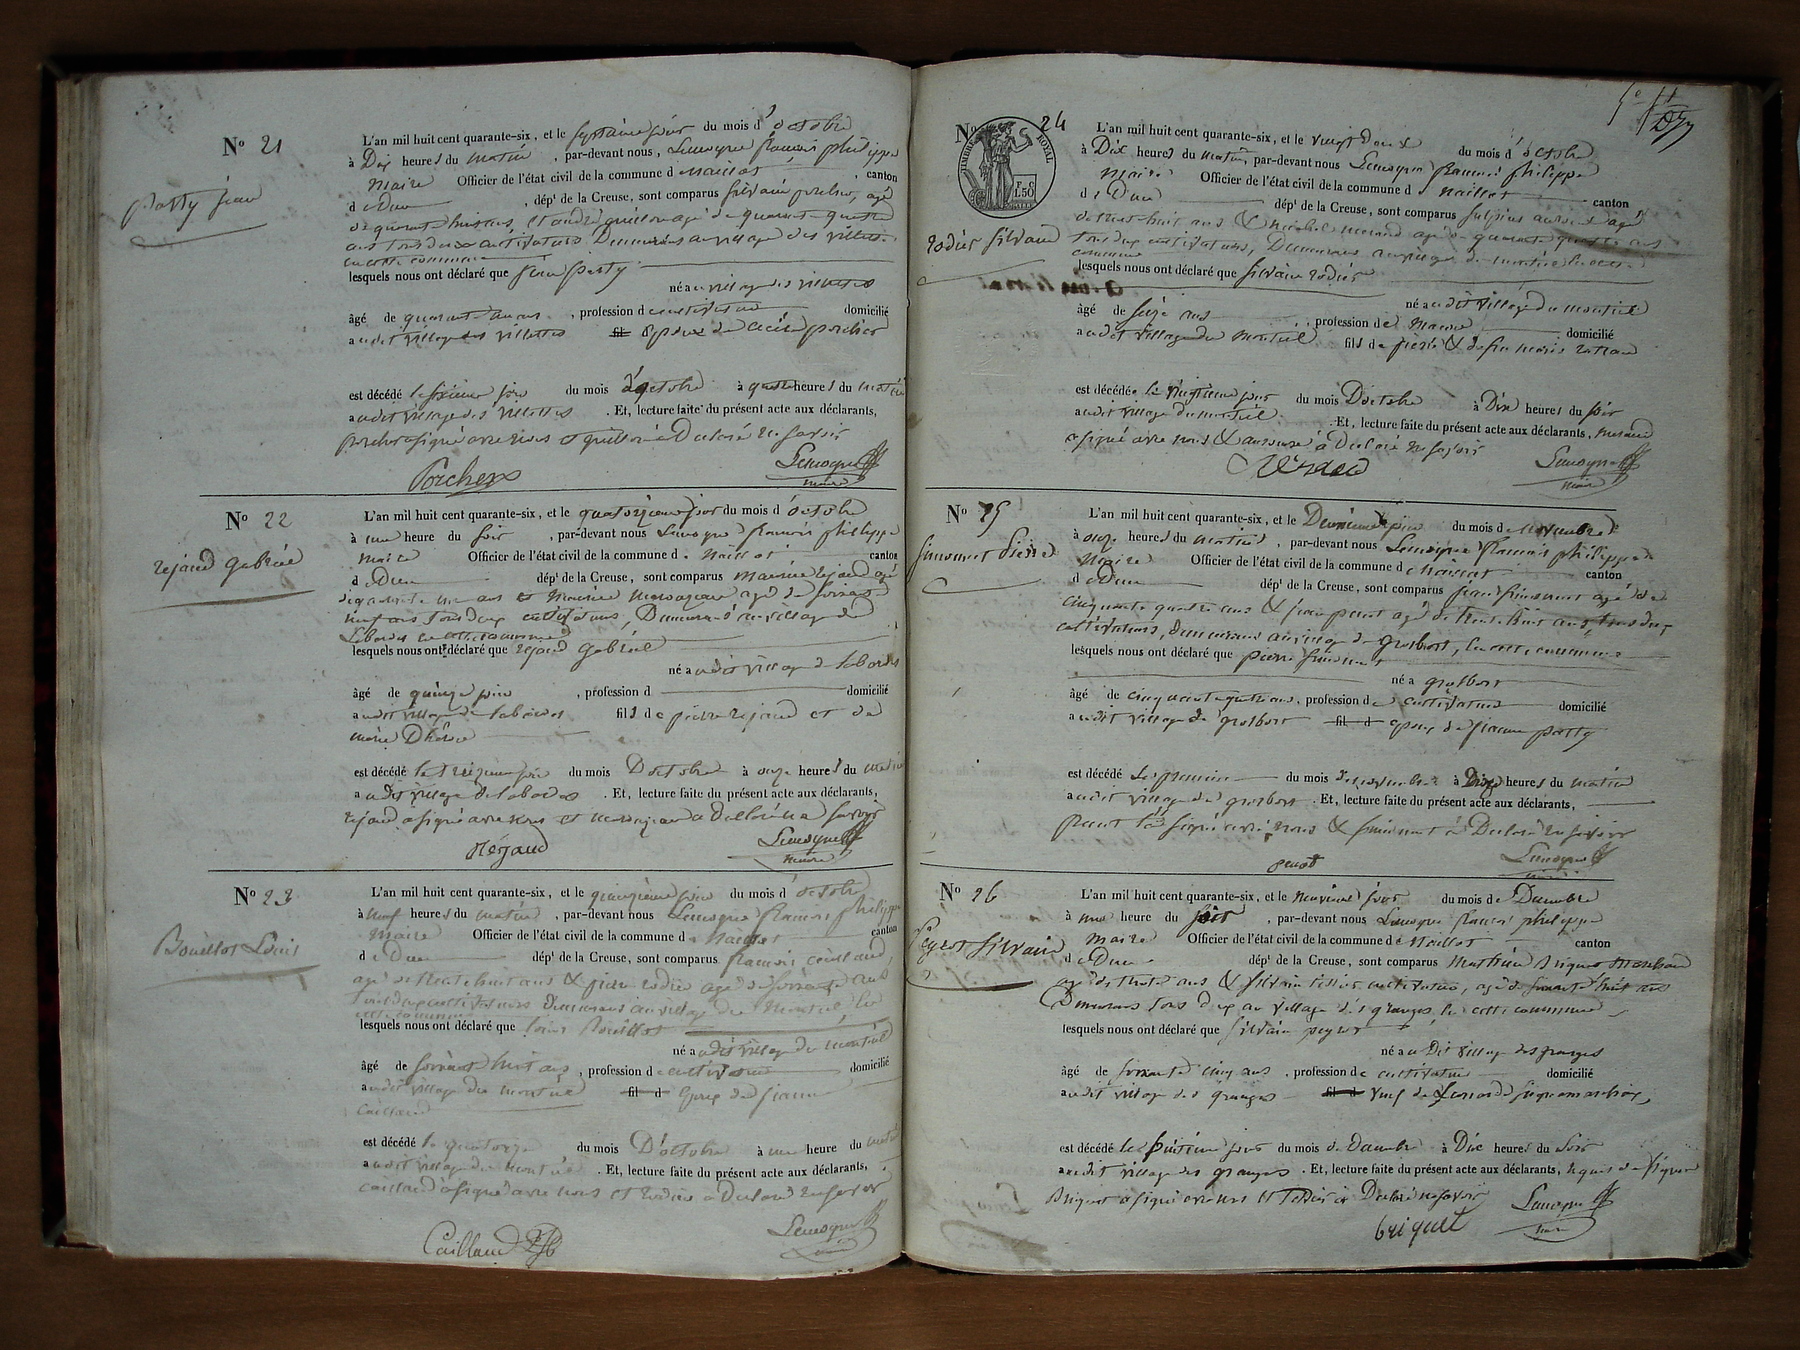 N° 21
party jean
L'an mil huit cent quarante-six, et le septième jour du mois d'octobre
à Dix heures du matin, par-devant nous, Lemoyne françois philippe
Maire Officier de l'état civil de la commune de Naillat canton
de Dun, dépt de la Creuse, sont comparus silvain porcher, agé
de quarante huit ans, et andré guillon agé de quarante quatre
ans tous deux cultivateurs Demeurans au village des villettes
en cette commune
lesquels nous ont déclaré que jean party
né au village des villettes
âgé de quarante ans, profession de cultivateur domicilié
audit village des villettes fil époux de cécile porcher
est décédé le sixième jour du mois d'octobre à quatre heures du matin
audit village des villettes. Et, lecture faite du présent acte aux déclarants,
porcher a signé avec nous et guillon a Declaré ne savoir
Porcher Lemoyne
maire
N° 22
rejaud gabriel
L'an mil huit cent quarante-six, et le quatorzième jour du mois d'octobre
à une heure du soir, par-devant nous Lemoyne françois philippe
Maire Officier de l'état civil de la commune de Naillat canton
de Dun dépt de la Creuse, sont comparus maurice rejaud agé
de ans et Maurice agé de soixante
neuf ans tous deux cultivateurs, Demeurans au village de
Labordes en cette commune
lesquels nous ont déclaré que rejaud gabriel
né audit village de labordes
âgé de quinze jours, profession d domicilié
audit village de labordes fils de pierre rejaud et de
marie
est décédé le treizième jour du mois D'octobre à onze heures du matin
audit village de labordes. Et, lecture faite du présent acte aux déclarants,
rejaud a signé avec nous et a Declaré ne savoir
Réjaud Lemoyne
maire
N° 23
Bouillot Louis
L'an mil huit cent quarante-six, et le quinzième jour du mois d'octobre
à neuf heures du matin, par-devant nous Lemoyne françois philippe
Maire Officier de l'état civil de la commune de Naillat canton
de Dun dépt de la Creuse, sont comparus françois caillaud,
agé de trente huit ans & jean rodier agé de soixante ans
tous deux cultivateurs Demeurans au village du Montueil, en
cette commune
lesquels nous ont déclaré que louis Bouillot
né audit village du montueil
âgé de soixante huit ans, profession de cultivateur domicilié
audit village du montueil fil d Epoux de jeanne
caillaud
est décédé le quatorze du mois D'octobre à une heure du matin
audit village du montueil. Et, lecture faite du présent acte aux déclarants,
caillaud a signé avec nous et rodier a Declaré ne savoir
Caillaud Lemoyne
maire
N° 24
TIMBRE ROYAL
rodier silvain
L'an mil huit cent quarante-six, et le vingt deux du mois d'octobre
à Dix heures du matin, par-devant nous Lemoyne françois philippe
Maire Officier de l'état civil de la commune de Naillat canton
de Dun dépt de la Creuse, sont comparus agé
de trente huit ans & michel agé de quarante quatre ans
tous deux cultivateurs, Demeurans au village du montueil en cette
commune
lesquels nous ont déclaré que silvain rodier
né audit village du montueil
âgé de seize ans, profession de Maçon domicilié
audit village du Montueil fils de pierre & de feu marie
est décédé le vingtième jour du mois D'octobre à Dix heures du soir
audit village du montueil. Et, lecture faite du présent acte aux déclarants,
a signé avec nous & a Declaré ne savoir
Lemoyne
maire
N° 25
simonnet pierre
L'an mil huit cent quarante-six, et le Deuxième jour du mois de Novembre
à onze heures du matin, par-devant nous Lemoyne françois philippe
Maire Officier de l'état civil de la commune de Naillat canton
de Dun dépt de la Creuse, sont comparus jean simonnet agé de
cinquante quatre ans & jean agé de trente huit ans, tous deux
cultivateurs, demeurans au village de grosbost, en cette commune
lesquels nous ont déclaré que pierre simonnet
né à grosbost
âgé de cinquante quatre ans, profession de cultivateur domicilié
audit village de grosbost fil d époux de jeanne party
est décédé le premier du mois de novembre à Dix heures du matin
audit village de grosbost. Et, lecture faite du présent acte aux déclarants,
a signé avec nous & simonnet a Declaré ne savoir
Lemoyne
N° 26
silvain
L'an mil huit cent quarante-six, et le Neuvième jour du mois de Décembre
à une heure du soir, par-devant nous Lemoyne françois philippe
Maire Officier de l'état civil de la commune de Naillat canton
de Dun dépt de la Creuse, sont comparus Mathieu Briquet
agé de trente ans & silvain tessier cultivateur, agé de soixante huit ans
Demeurans tous deux au village des granges en cette commune
lesquels nous ont déclaré que silvain
né audit village des granges
âgé de soixante cinq ans, profession de cultivateur domicilié
audit village des granges fil d veuf de
est décédé le huitième jour du mois de Décembre à Dix heures du Soir
audit village des granges. Et, lecture faite du présent acte aux déclarants,
Briquet a signé avec nous et tessier a Declaré ne savoir
briquet Lemoyne